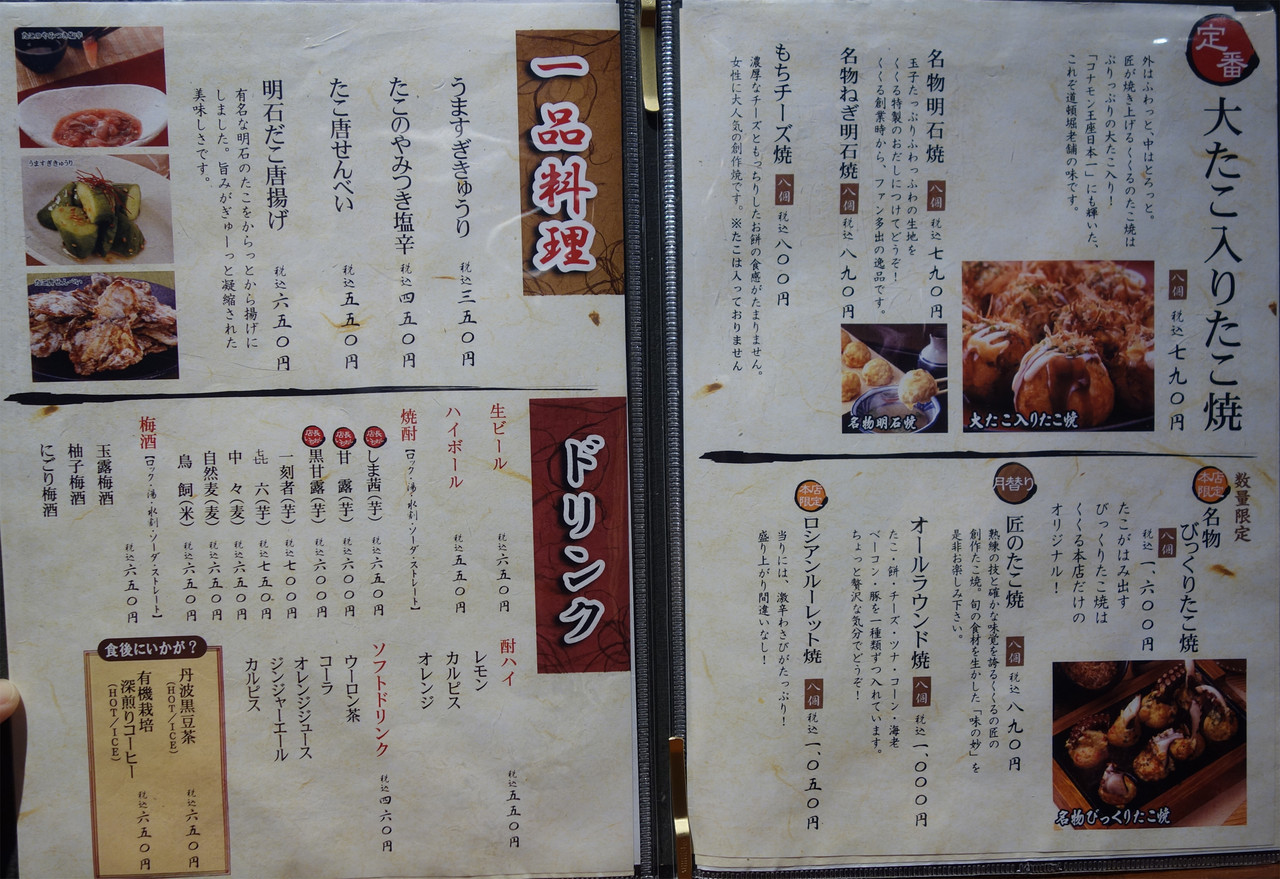 定番
大たこ入りたこ焼
八個 税込 七九〇円
外はふわっと、中はとろっと。
匠が焼き上げるくくるのたこ焼は
ぷりっぷりの大たこ入り!
「コナモン王座日本一」にも輝いた、
これぞ道頓堀老舗の味です。
大たこ入りたこ焼
名物明石焼 八個 税込 七九〇円
玉子たっぷりふわっふわの生地を
くくる特製のおだしにつけてどうぞ!
くくる創業時から、ファン多出の逸品です。
名物ねぎ明石焼 八個 税込 八九〇円
名物明石焼
もちチーズ焼 八個 税込 八〇〇円
濃厚なチーズともっちりしたお餅の食感がたまりません。
女性に大人気の創作焼です。 ※たこは入っておりません
数量限定
本店限定
名物
びっくりたこ焼
八個
税込 一、六〇〇円
たこがはみ出す
びっくりたこ焼は
くくる本店だけの
オリジナル!
名物びっくりたこ焼
月替り
匠のたこ焼 八個 税込 八九〇円
熟練の技と確かな味覚を誇るくくるの匠の
創作たこ焼。旬の食材を生かした「味の妙」を
是非お楽しみ下さい。
オールラウンド焼 八個 税込 一、〇〇〇円
たこ・餅・チーズ・ツナ・コーン・海老
ベーコン・豚を一種類ずつ入れています。
ちょっと贅沢な気分でどうぞ!
本店限定
ロシアンルーレット焼 八個 税込 一、〇五〇円
当りには、激辛わさびがたっぷり!
盛り上がり間違いなし!
一品料理
うますぎきゅうり 税込 三五〇円
たこのやみつき塩辛 税込 四五〇円
たこ唐せんべい 税込 五五〇円
明石だこ唐揚げ 税込 六五〇円
有名な明石のたこをからっとから揚げに
しました。旨みがぎゅーっと凝縮された
美味しさです。
たこのやみつき塩辛
うますぎきゅうり
たこ唐せんべい
ドリンク
生ビール 税込 六五〇円
ハイボール 税込 五五〇円
焼酎【ロック・湯・水割・ソーダ・ストレート】
しま茜(芋) 税込 六五〇円
甘露(芋) 税込 六〇〇円
黒甘露(芋) 税込 六〇〇円
一刻者(芋) 税込 七〇〇円
六(芋) 税込 七五〇円
中々(麦) 税込 六五〇円
自然麦(麦) 税込 六五〇円
鳥飼(米) 税込 六五〇円
梅酒【ロック・湯・水割・ソーダ・ストレート】
税込 六五〇円
玉露梅酒
柚子梅酒
にごり梅酒
酎ハイ 税込 五五〇円
レモン
カルピス
オレンジ
ソフトドリンク 税込 四六〇円
ウーロン茶
コーラ
オレンジジュース
ジンジャーエール
カルピス
食後にいかが?
丹波黒豆茶
(HOT/ICE)
税込 六五〇円
有機栽培
深煎りコーヒー
(HOT/ICE)
税込 六五〇円